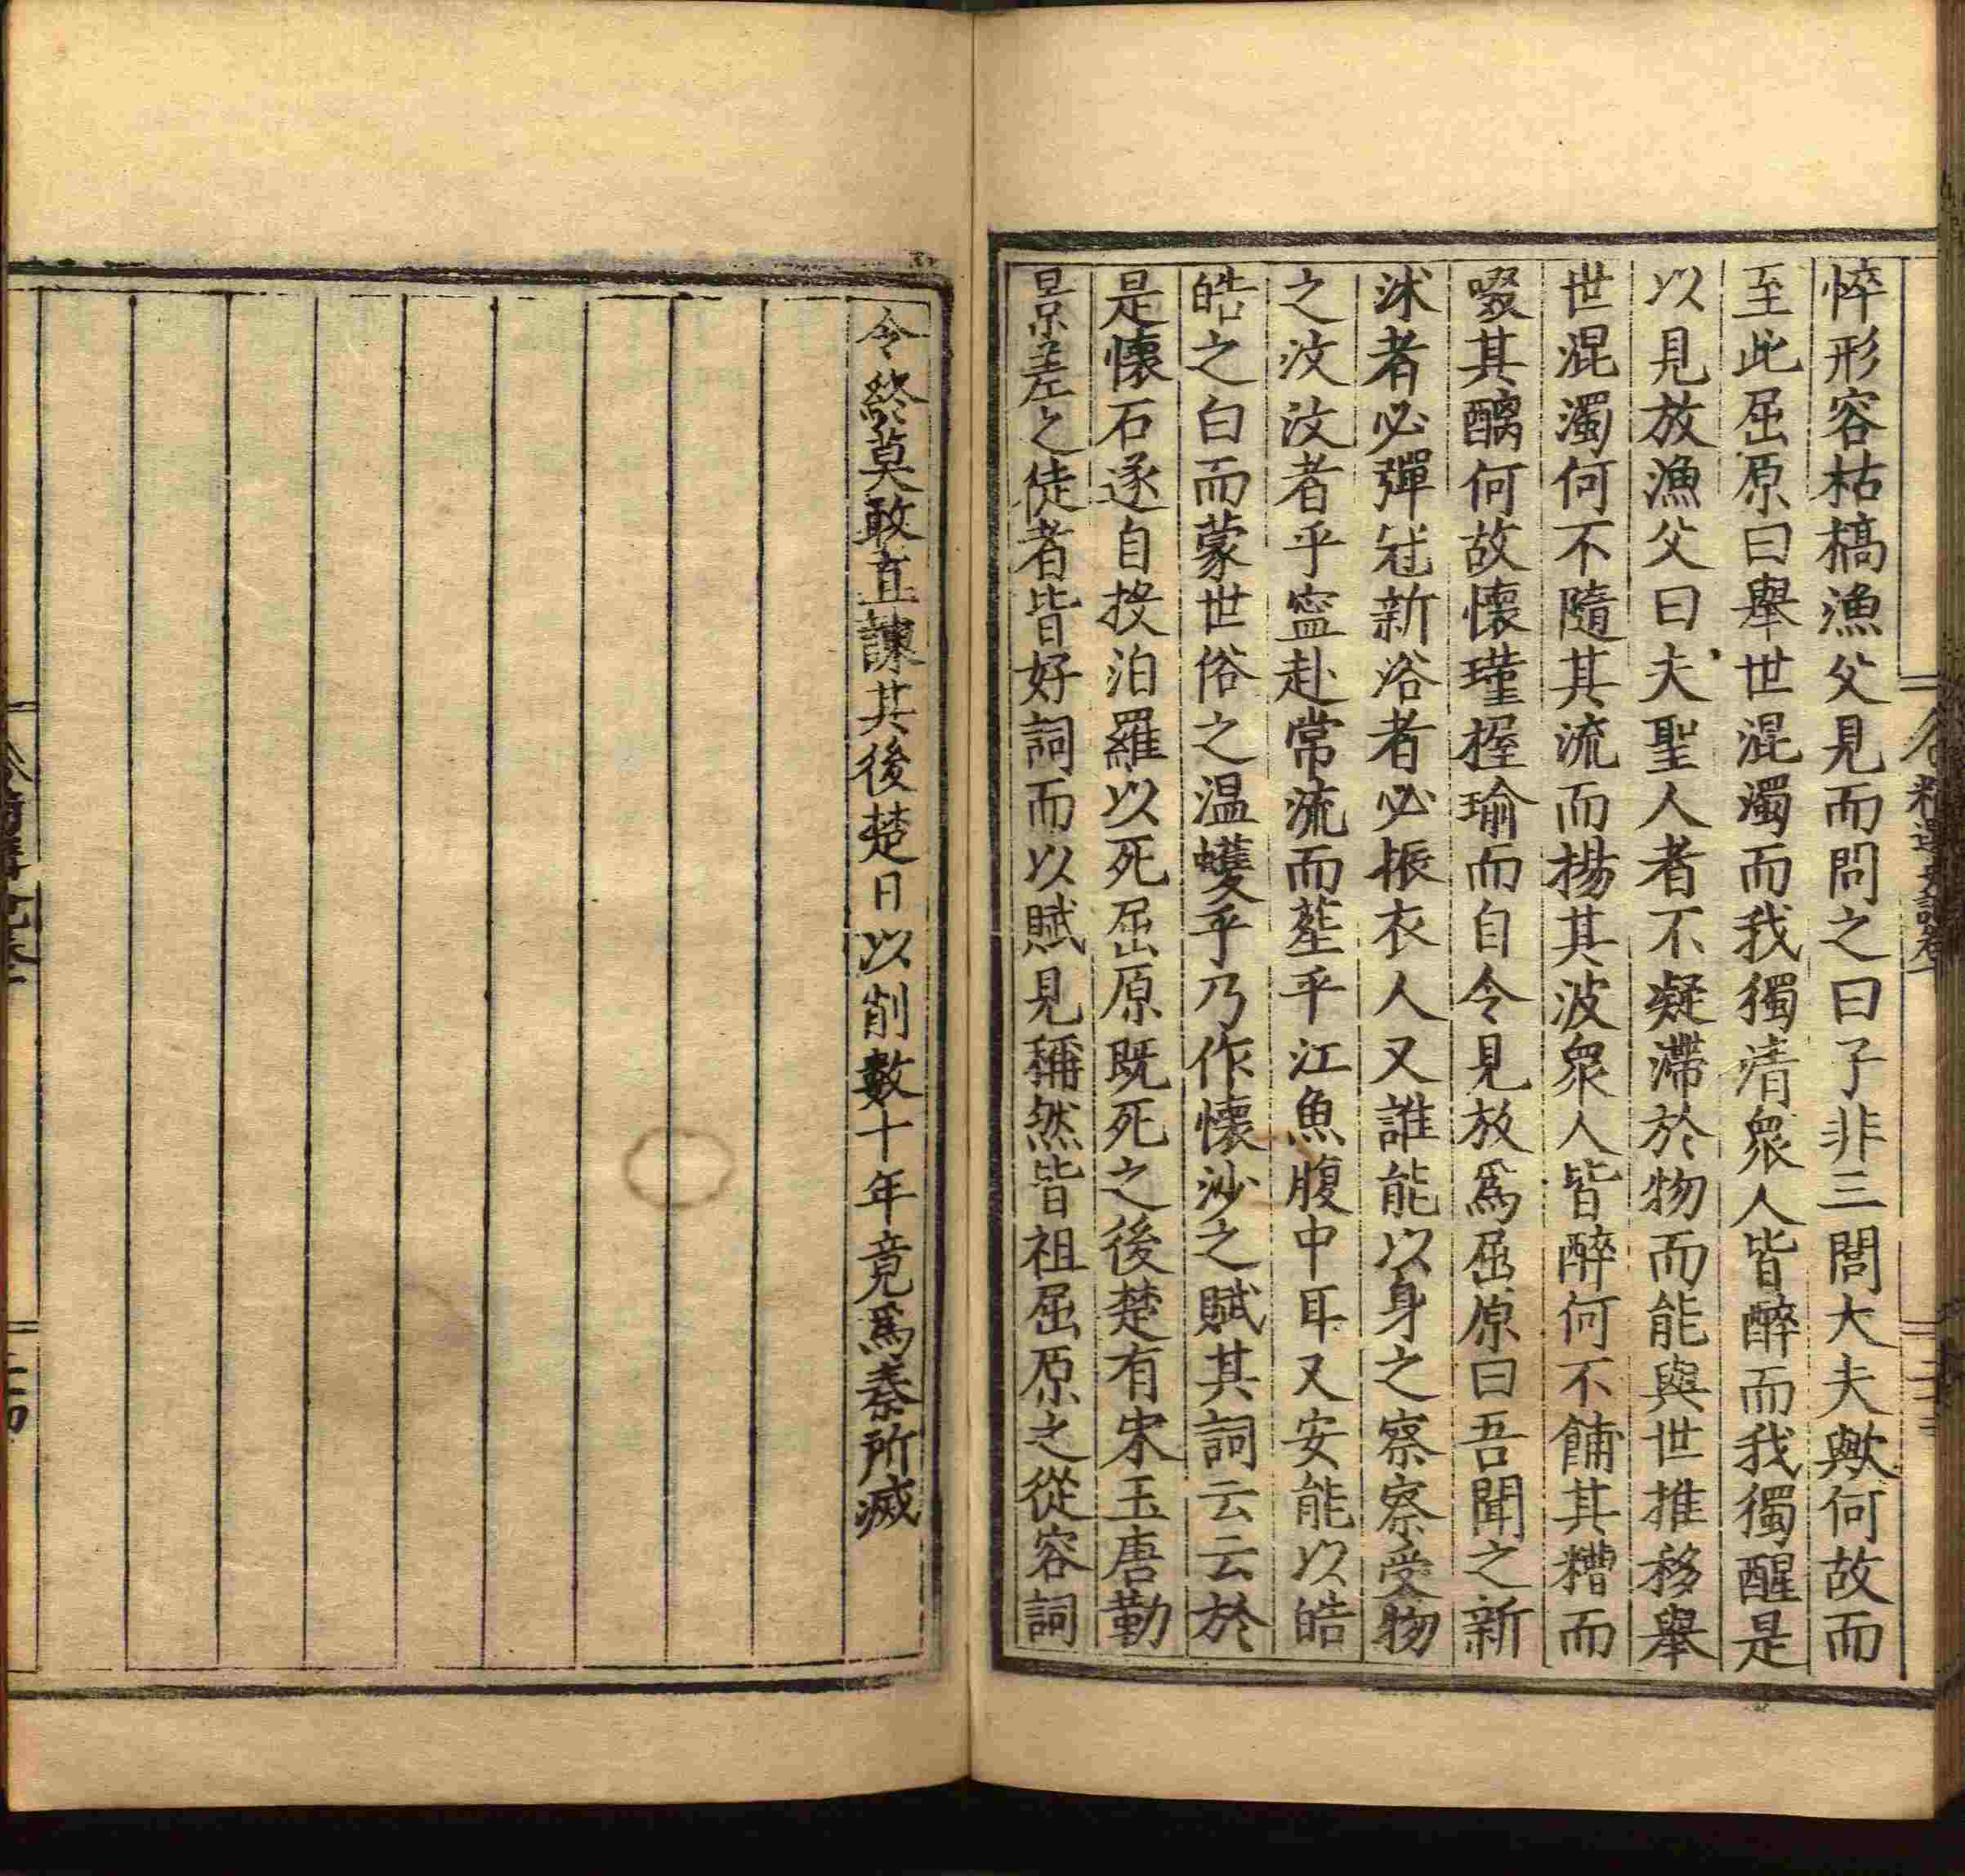 悴形容枯槁漁父見而問之曰子非三閭大夫歟何故而
至此屈原曰舉世混濁而我獨清衆人皆醉而我獨醒是
以見放漁父曰夫聖人者不凝滯於物而能與世推移舉
世混濁何不隨其流而揚其波衆人皆醉何不餔其糟而
啜其醨何故懷瑾握瑜而自令見放爲屈原曰吾聞之新
沭者必彈冠新浴者必振衣人又誰能以身之察察受物
之汶汶者乎寧赴常流而葬乎江魚腹中耳又安能以皓
皓之白而蒙世俗之温蠖乎乃作懷沙之賦其詞云云於
是懷石遂自投泊羅以死屈原既死之後楚有宋玉唐勤
景差之徒者皆好詞而以賦見稱然皆祖屈原之從容詞
令終莫敢直諫其後楚日以削數十年竟爲秦所滅